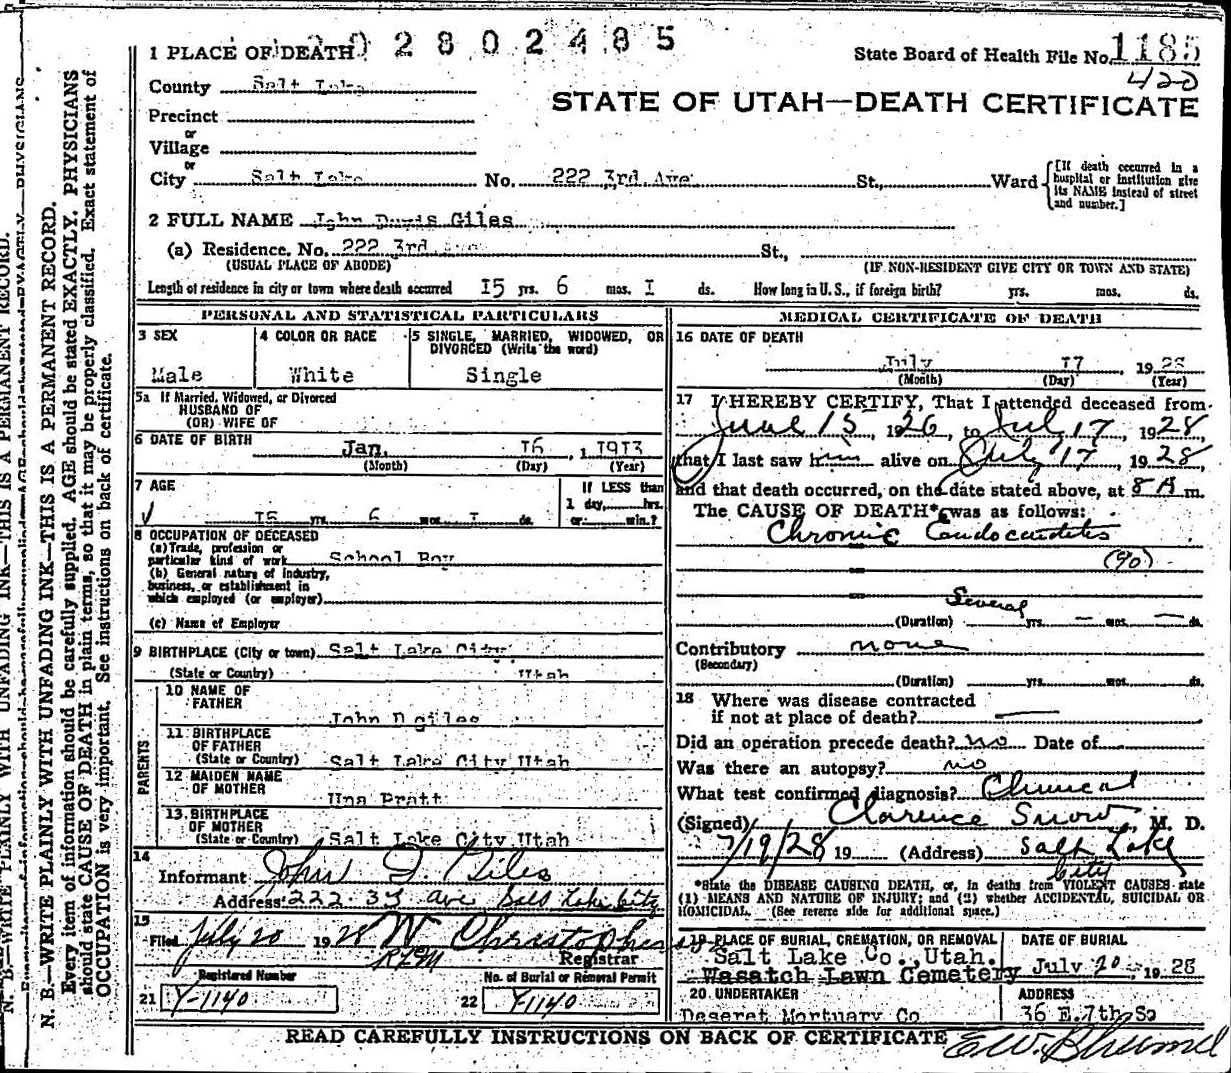 1 PLACE OF DEATH 2802485
State Board of Health File No. 1185
420
County Salt Lake
STATE OF UTAH—DEATH CERTIFICATE
Precinct
or
Village
or
City Salt Lake No. 222 3rd Ave St., Ward [If death occurred in a hospital or institution give its NAME instead of street and number.]
2 FULL NAME John Davis Giles
(a) Residence. No. 222 3rd Ave St.,
(USUAL PLACE OF ABODE) (IF NON-RESIDENT GIVE CITY OR TOWN AND STATE)
Length of residence in city or town where death occurred 15 yrs. 6 mos. 1 ds. How long in U. S., if foreign birth? yrs. mos. ds.
PERSONAL AND STATISTICAL PARTICULARS
3 SEX
Male
4 COLOR OR RACE
White
5 SINGLE, MARRIED, WIDOWED, OR
DIVORCED (Write the word)
Single
5a If Married, Widowed, or Divorced
HUSBAND OF
(OR) WIFE OF
6 DATE OF BIRTH Jan. 16 , 1 1913
(Month) (Day) (Year)
7 AGE
15 yrs. 6 mos. 1 ds.
If LESS than
1 day, hrs.
or min.?
8 OCCUPATION OF DECEASED
(a) Trade, profession or
particular kind of work School Boy
(b) General nature of industry,
business, or establishment in
which employed (or employer)
(c) Name of Employer
9 BIRTHPLACE (City or town) Salt Lake City
(State or Country) Utah
PARENTS
10 NAME OF
FATHER
John D giles
11 BIRTHPLACE
OF FATHER
(State or Country) Salt Lake City Utah
12 MAIDEN NAME
OF MOTHER
Una Pratt
13 BIRTHPLACE
OF MOTHER
(State or Country) Salt Lake City Utah
14
Informant John D. Giles
Address 222 3d ave Salt Lake City
15
Filed July 20 1928 W Christopherson
Registrar
Registered Number
21 Y-1140
No. of Burial or Removal Permit
22 Y-1140
MEDICAL CERTIFICATE OF DEATH
16 DATE OF DEATH
July 17 , 19 28
(Month) (Day) (Year)
17 I HEREBY CERTIFY, That I attended deceased from
June 15, 1926, to July 17, 1928,
that I last saw him alive on July 17, 1928
and that death occurred, on the date stated above, at 8 A m.
The CAUSE OF DEATH* was as follows:
Chronic Endocarditis
(90)
Several
(Duration) yrs. — mos. — ds.
Contributory none
(Secondary)
(Duration) yrs. mos. ds.
18 Where was disease contracted
if not at place of death? —
Did an operation precede death? no Date of
Was there an autopsy? no
What test confirmed diagnosis? Clinical
(Signed) Clarence Snow, M. D.
7/19/28 19 (Address) Salt Lake
City
*State the DISEASE CAUSING DEATH, or, in deaths from VIOLENT CAUSES state
(1) MEANS AND NATURE OF INJURY; and (2) whether ACCIDENTAL, SUICIDAL OR
HOMICIDAL. (See reverse side for additional space.)
19 PLACE OF BURIAL, CREMATION, OR REMOVAL
Salt Lake Co., Utah.
Wasatch Lawn Cemetery
DATE OF BURIAL
July 20 , 19 28
20 UNDERTAKER
Deseret Mortuary Co
ADDRESS
36 E.7th So
READ CAREFULLY INSTRUCTIONS ON BACK OF CERTIFICATE
N. B.—WRITE PLAINLY WITH UNFADING INK—THIS IS A PERMANENT RECORD.
N. B.—WRITE PLAINLY WITH UNFADING INK—THIS IS A PERMANENT RECORD.
Every item of information should be carefully supplied. AGE should be stated EXACTLY. PHYSICIANS
should state CAUSE OF DEATH in plain terms, so that it may be properly classified. Exact statement of
OCCUPATION is very important. See instructions on back of certificate.